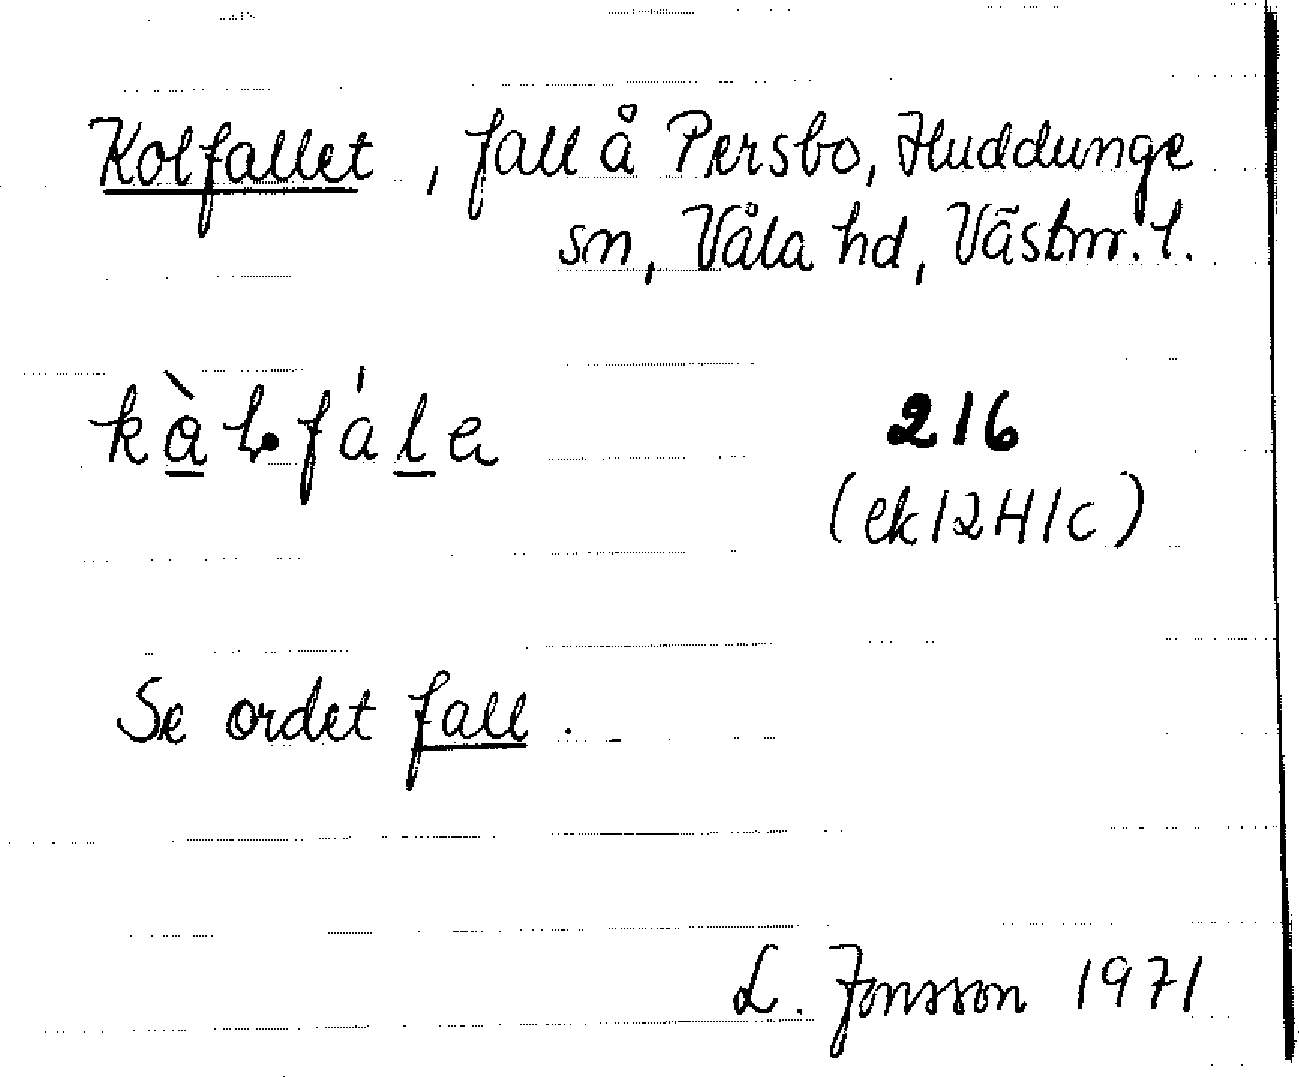 Kolfallet, fall å Persbo, Huddunge
sn, Våla hd, Västm. l.
kàlfále
216
(ek 12H1c)
Se ordet fall.
L. Jonsson 1971